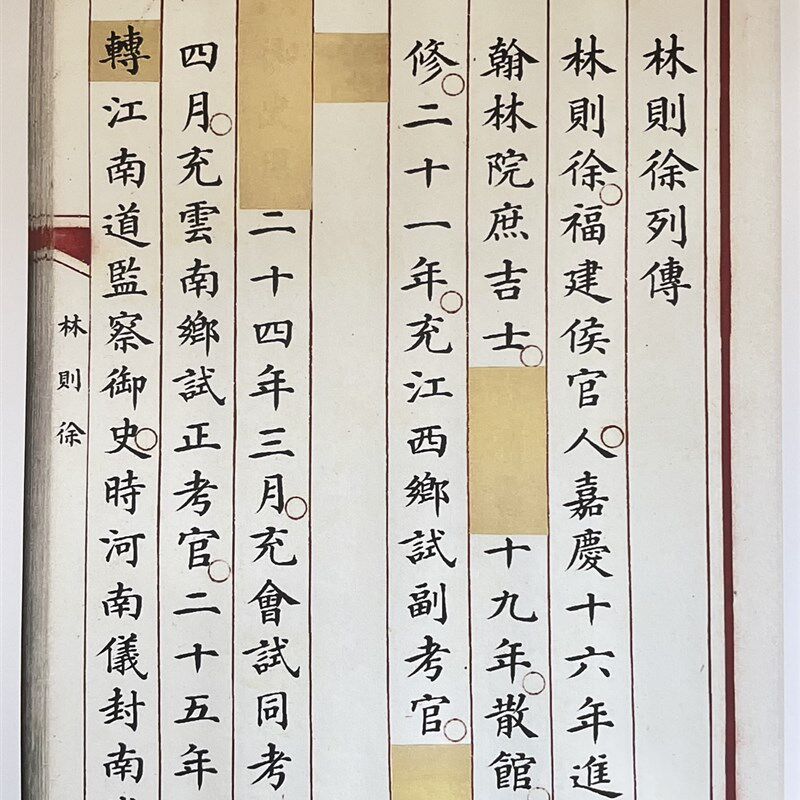 林則徐列傳
林則徐福建侯官人嘉慶十六年進
翰林院庶吉士十九年散館
修二十一年充江西鄉試副考官
二十四年三月充會試同考
四月充雲南鄉試正考官二十五年
轉江南道監察御史時河南儀封南
林則徐